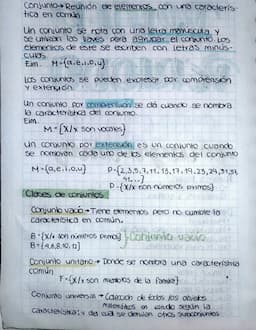 Conjunto→ Reunión de elementos, con una caracterís-
tica en común.
Un conjunto se nota con una letra mayúscula y
se utilizan las llaves para agrupar el conjunto. Los
elementos de este se escriben con letras minús-
culas.
Ejm. M={a,e,i,o,u}
Los conjuntos se pueden expresar por comprensión
y extensión.
Un conjunto por comprensión se da cuando se nombra
la característica del conjunto.
Ejm.
M={x/x son vocales}
Un conjunto por extensión es un conjunto cuando
se nombran cada uno de los elementos del conjunto
M={a,e,i,o,u} P={2,3,5,7,11,13,17,19,23,29,31,37
41...}
P={x/x son números primos}
Clases de conjuntos
Conjunto vacío→ Tiene elementos pero no cumple la
característica en común.
B={x/x son números primos} } Conjunto vacío
B={4,6,8,10,12}
Conjunto unitario→ Donde se nombra una característica
común
F={x/x son miembros de la familia}
Conjunto universal→ Colección de todos los objetos
en estudio según la
característica; y del cual se derivan otros subconjuntos